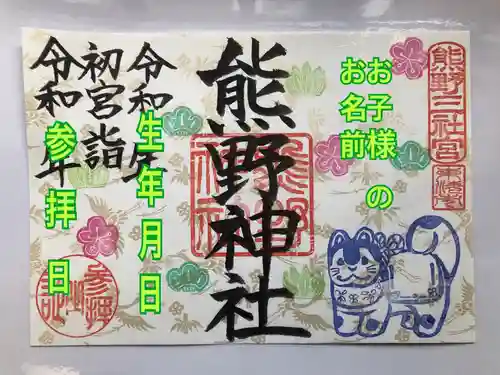 熊野三社宮
お子様 の
お名前
熊野神社
令和 年
生年月日
初宮詣
令和 年
参拝 日